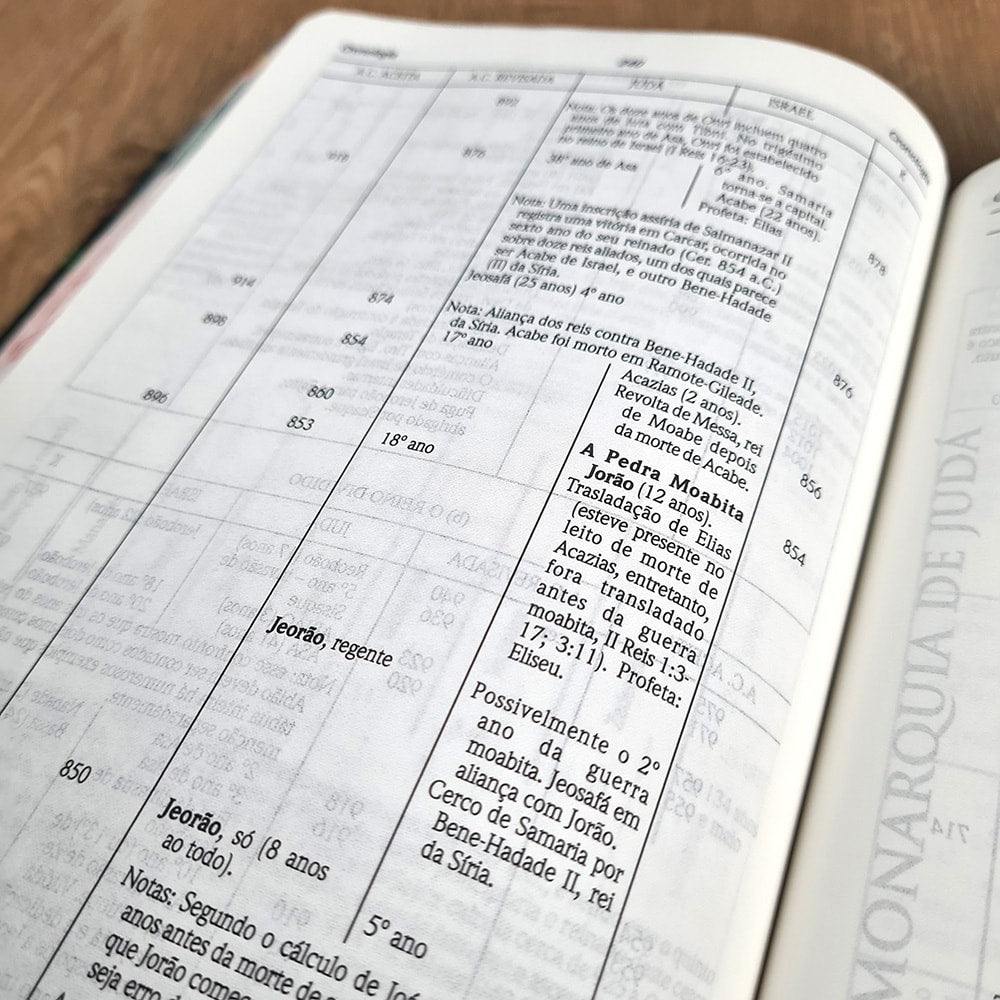 Cronologia
A.C. ACEITA A.C. REVISADA JUDÁ ISRAEL
Nota: Os doze anos de Onri incluem quatro
anos de luta com Tibni. No trigésimo
primeiro ano de Asa, Onri foi estabelecido
no reino de Israel (I Reis 16:23).
918 876 38º ano de Asa
6º ano. Samaria
torna-se a capital.
Acabe (22 anos).
Profeta: Elias
878
Nota: Uma inscrição assíria de Salmanazar II
registra uma vitória em Carcar, ocorrida no
sexto ano do seu reinado (Cer. 854 a.C.)
sobre doze reis aliados, um dos quais parece
ser Acabe de Israel, e outro Bene-Hadade
(II) da Síria.
914 874 Jeosafá (25 anos) 4º ano
876
Nota: Aliança dos reis contra Bene-Hadade II,
da Síria. Acabe foi morto em Ramote-Gileade.
898 854 17º ano
Acazias (2 anos).
Revolta de Messa, rei
de Moabe depois
da morte de Acabe.
856
896 860
853 18º ano
A Pedra Moabita
Jorão (12 anos).
Trasladação de Elias
(esteve presente no
leito de morte de
Acazias, entretanto,
fora transladado
antes da guerra
moabita, II Reis 1:3-
17; 3:11). Profeta:
Eliseu.
854
Jeorão, regente
Possivelmente o 2º
ano da guerra
moabita. Jeosafá em
aliança com Jorão.
Cerco de Samaria por
Bene-Hadade II, rei
da Síria.
850 Jeorão, só (8 anos
ao todo).
5º ano
Notas: Segundo o cálculo de
anos antes da morte de
que Jorão
seja erro
MONARQUIA DE JUDÁ
714